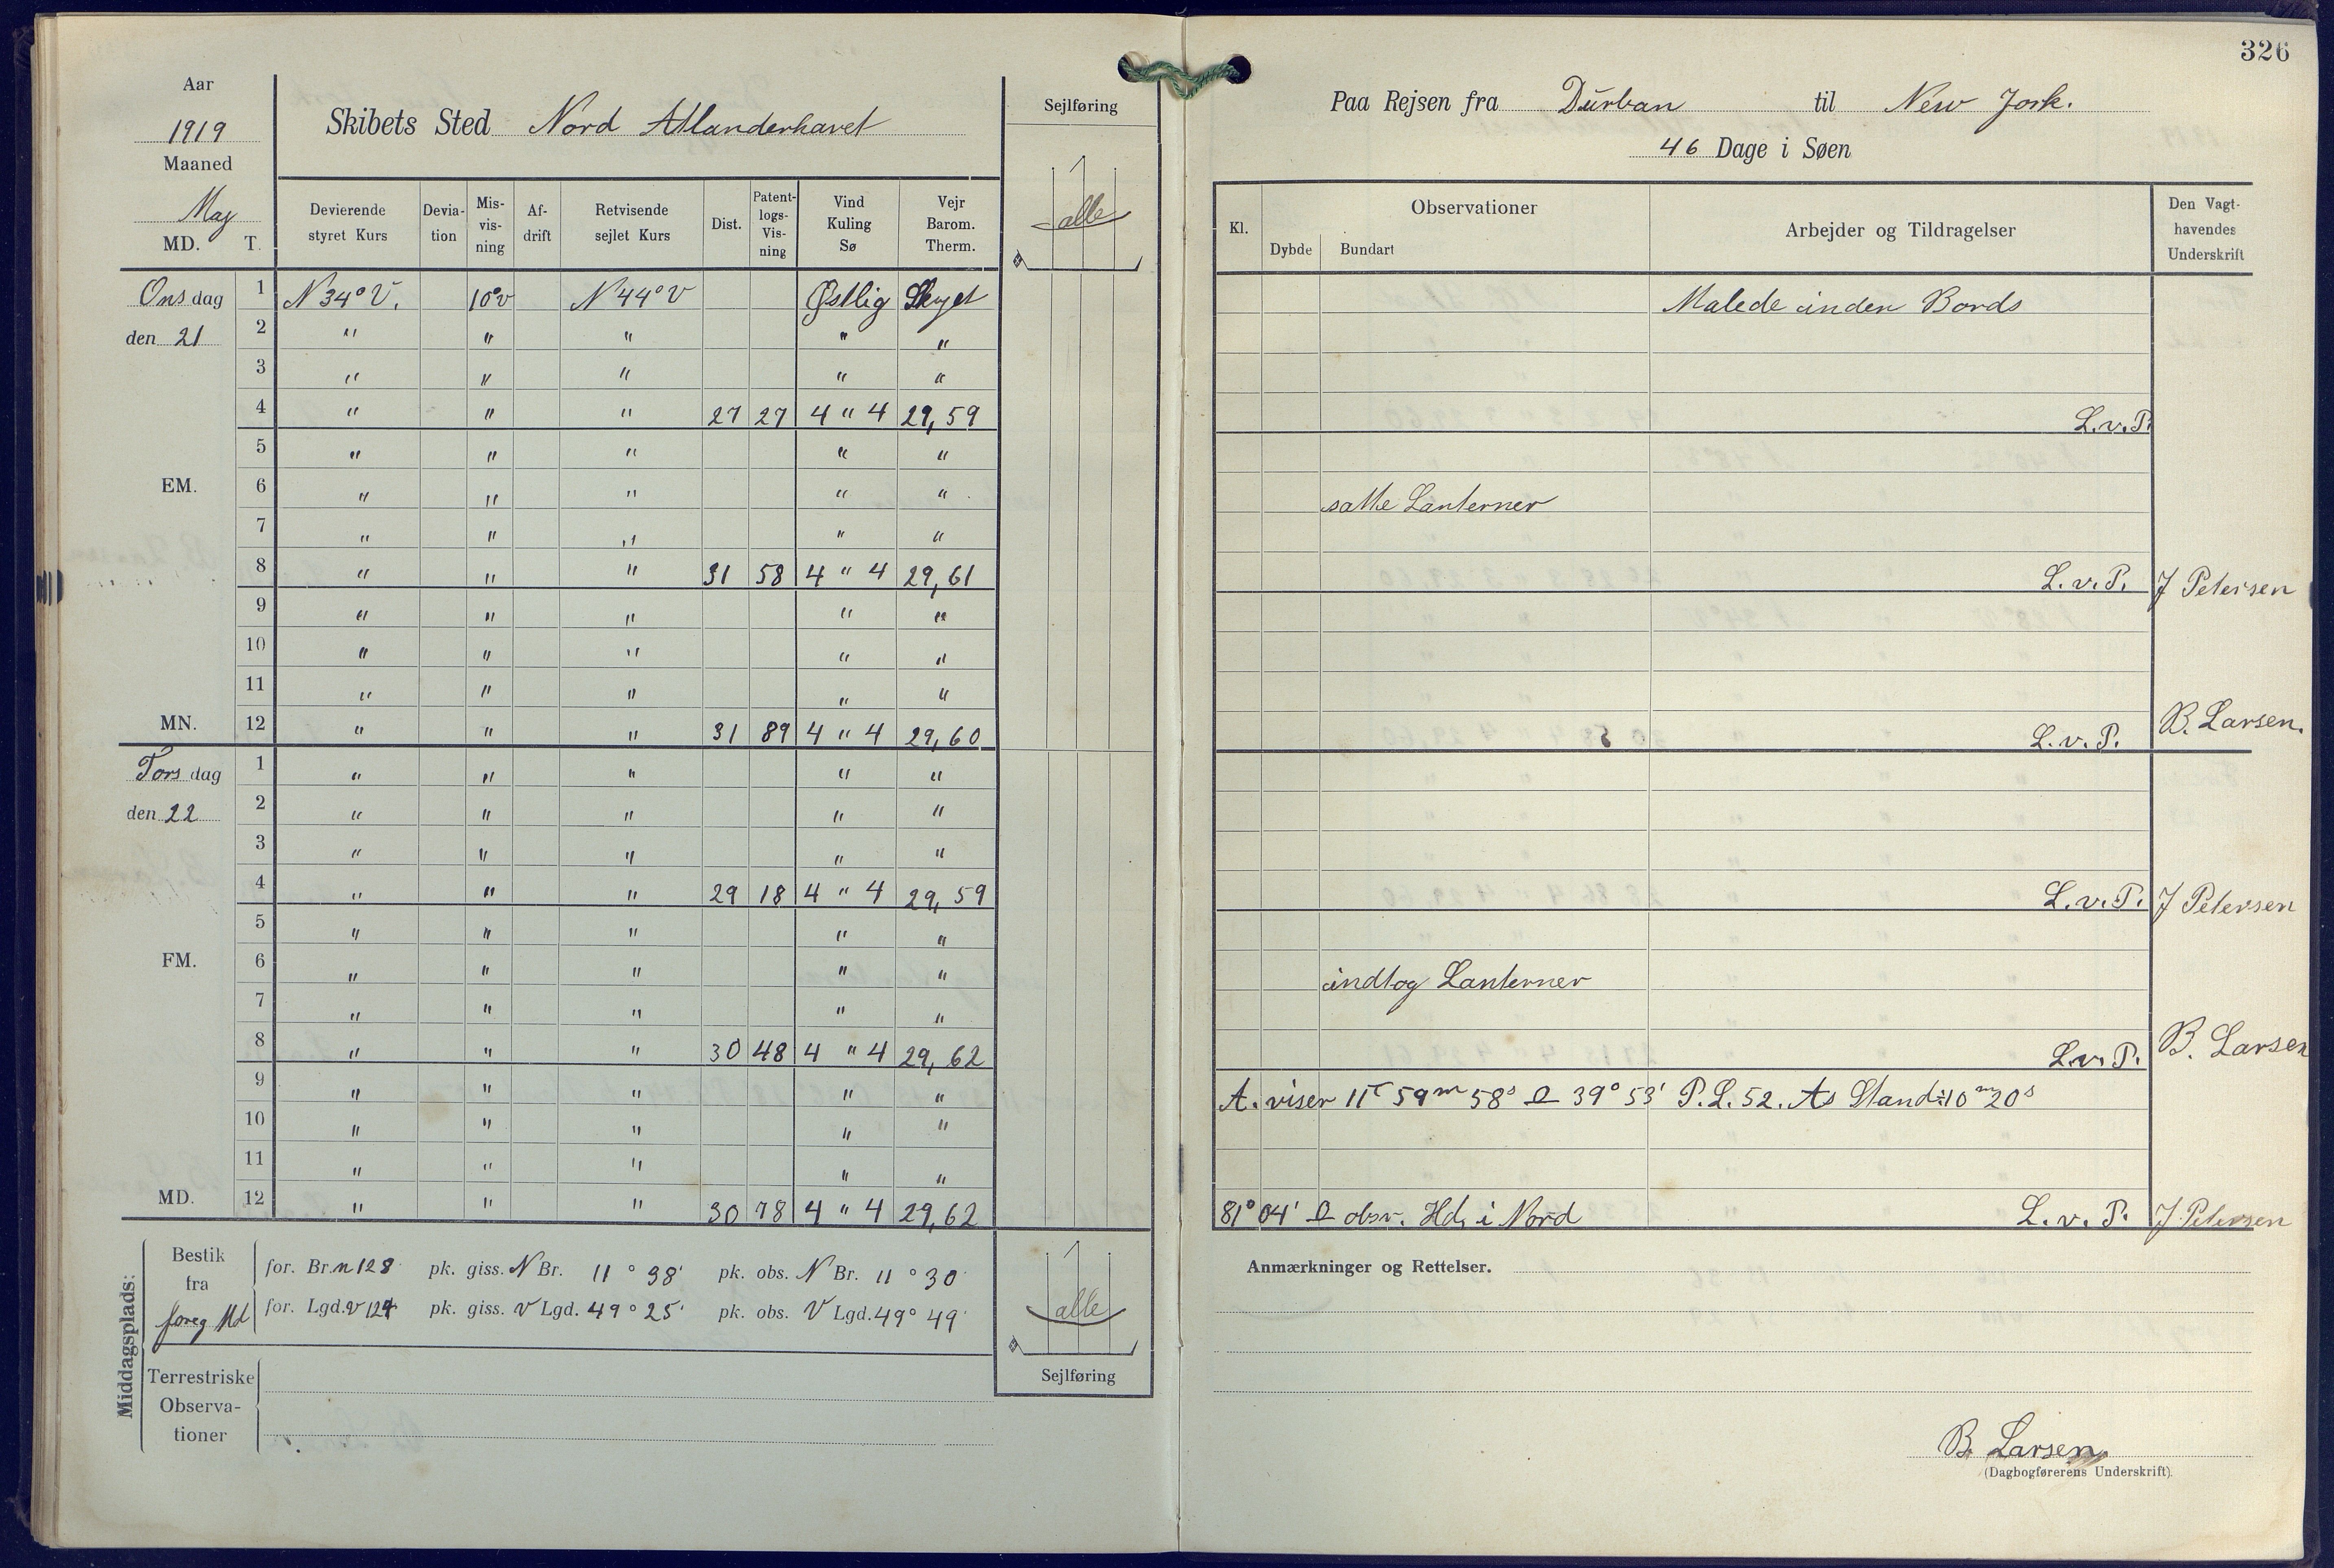 326
Aar
1919
Maaned
Maj
MD. T.
Skibets Sted Nord Atlanderhavet
Sejlføring
alle
Devierende styret Kurs | Devia-tion | Mis-vis-ning | Af-drift | Retvisende sejlet Kurs | Dist. | Patent-logs-Vis-ning | Vind Kuling Sø | Vejr Barom. Therm.
Onsdag 1 N 34° V. 10° v N 44° V Østlig Skyet
den 21 2 " " " " "
3 " " " " "
4 " " " 27 27 4 " 4 29,59
5 " " " " "
EM. 6 " " " " "
7 " " " " "
8 " " " 31 58 4 " 4 29,61
9 " " " " "
10 " " " " "
11 " " " " "
MN. 12 " " " 31 89 4 " 4 29,60
Torsdag 1 " " " " "
den 22 2 " " " " "
3 " " " " "
4 " " " 29 18 4 " 4 29,59
5 " " " " "
FM. 6 " " " " "
7 " " " " "
8 " " " 30 48 4 " 4 29,62
9 " " " " "
10 " " " " "
11 " " " " "
MD. 12 " " " 30 78 4 " 4 29,62
Middagsplads:
Bestik fra foreg Md
for. Br. n 128 pk. giss. N Br. 11° 38' pk. obs. N Br. 11° 30'
for. Lgd. v 124 pk. giss. V Lgd. 49° 25' pk. obs. V Lgd. 49° 49'
alle
Sejlføring
Terrestriske
Observa-
tioner
Paa Rejsen fra Durban til New Jork.
46 Dage i Søen
Kl. | Observationer | Dybde | Bundart | Arbejder og Tildragelser | Den Vagt-havendes Underskrift
Malede inden Bords
L. v. P.
satte Lanterner
L. v. P. J Petersen
L. v. P. B. Larsen.
L. v. P. J Petersen
indtog Lanterner
L. v. P. B. Larsen
A. viser 11 59m 58s 39° 53' P. L. 52. As Stand ÷ 10m 20s
81° 04' obsr. Hd, i Nord L. v. P. J. Petersen
Anmærkninger og Rettelser.
B. Larsen
(Dagbogførerens Underskrift).